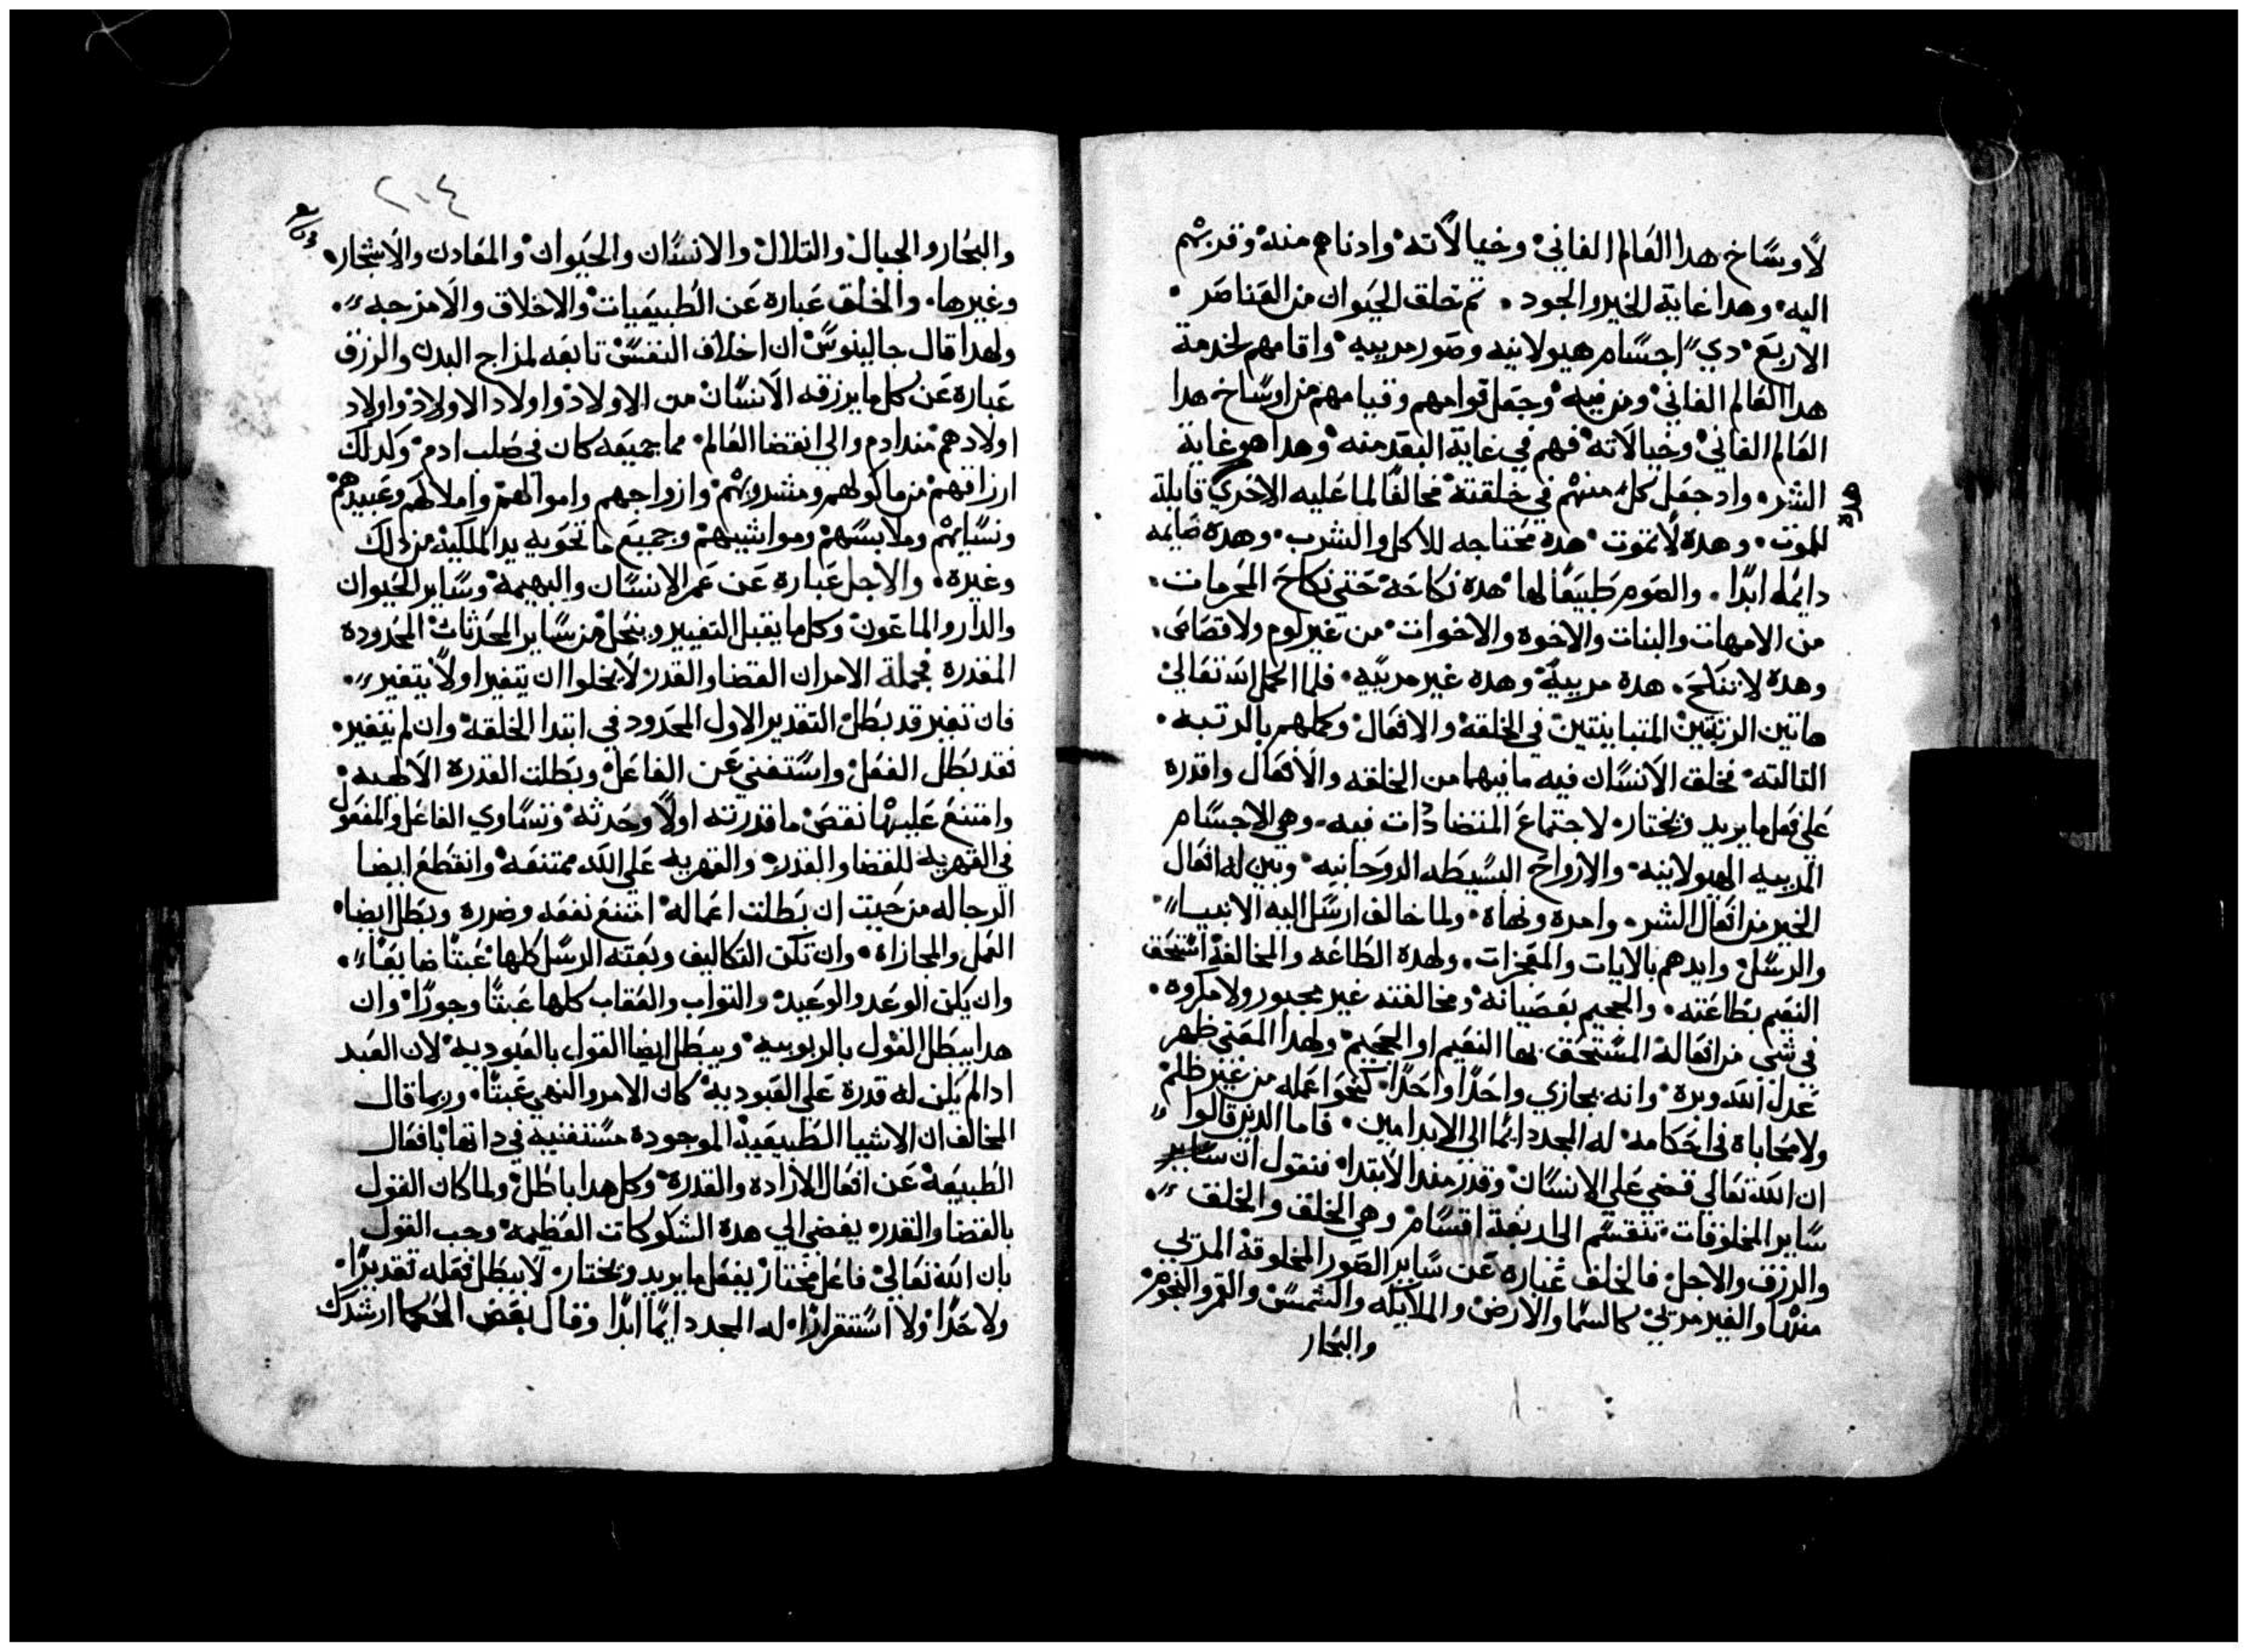 لاوساخ هدا العالم الفاني وخيالاته وادناهم منه وقربهم
اليه وهدا غاية الخير والجود . تم خلق الحيوان من العناصر .
الاربع دي اجسام هيولانيه وصور مربيه واقامهم لخدمة
هدا العالم الفاني ومن فيه وجعل قوامهم وقيامهم من اوساخ هدا
العالم الفاني وخيالاته فهم في غاية البعد منه وهدا هو غاية
الشر . واد جعل كل منهم في خلقته مخالفًا لما عليه الاخري قابلة
هده
للموت . وهده لا تموت هده محتاجه للاكل والشرب . وهده صايمه
دايمه ابدًا . والصوم طبيعًا لها هده نكاحه حتي نكاح المحرمات .
من الامهات والبنات والاخوه والاخوات من غير لوم ولا قصاص .
وهده لا تنكح . هده مربيه وهده غير مربيه . فلما اكمل الله تعالي
هاتين الرتبتين المتباينتين في الخلقه والافعال وكملهم بالرتبه .
التالته فخلق الانسان فيه ما فيهما من الخلقه والافعال واقدره
علي فعل ما يريد ويختار لاجتماع المتضادات فيه . وهي الاجسام
المربيه الهيولانيه والارواح البسيطه الروحانيه وبين له افعال
الخير من افعال الشر . وامره ونهاه ولما خالف ارسل اليه الانبيا
والرسل وايدهم بالايات والمعجزات . ولهده الطاعه والمخالفة استحق
النعيم بطاعته . والجحيم بعصيانه ومخالفته غير مجبور ولا مكروه .
في شي من افعاله المستحق بها النعيم او الجحيم ولهدا المعني ظهر
عدل الله وبره وانه يجازي واحدًا واحدًا كنحو اعماله من غير ظلم
ولا محاباه في احكامه له المجد دايمًا الي الابد امين . فاما الدين قالوا
ان الله تعالي قضي علي الانسان وقدر مند الابتدا فنقول ان ساير
ساير المخلوقات تنقسم الي اربعة اقسام وهي الخلق والخلق
والرزق والاجل فالخلق عباره عن ساير الصور المخلوقة المرتي
منها والغير مرتي كالسما والارض والملايكه والشمس والقمر والنجوم
والبحار
٢٠٤
والبحار والجبال والتلال والانسان والحيوان والمعادن والاشجار .
وغيرها . والخلق عباره عن الطبيعيات والاخلاق والامزجه .
ولهدا قال جالينوس ان اخلاق النفس تابعه لمزاج البدن والرزق
عباره عن كل ما يرزقه الانسان من الاولاد واولاد الاولاد واولاد
اولادهم مند ادم والي انقضا العالم مما جميعه كان في صلب ادم وكدلك
ارزاقهم من ماكولهم ومشروبهم وازواجهم واموالهم واملاكهم وعبيدهم
ونسايهم وملابسهم ومواشيهم وجميع ما تحويه يد الملكيه من دلك
وغيره . والاجل عباره عن عمر الانسان والبهيمه وساير الحيوان
والدار والماعون وكل ما يقبل التغيير وينحل من ساير المحدثات المحدوده
المقدره فجملة الامر ان القضا والقدر لا يخلوا ان يتغير او لا يتغير .
فان تغير قد بطل التقدير الاول المحدود في ابتدا الخلقه وان لم يتغير .
فقد بطل الفعل واستغني عن الفاعل وبطلت القدره الالهيه
وامتنع عليها نقض ما قدرته اولًا وحدته وتساوي الفاعل والمفعول
في القهريه للقضا والقدر والقهريه علي الله ممتنعه وانقطع ايضا
الرجا له من حيت ان بطلت اعماله امتنع نفعه وضرره وبطل ايضا
العمل والمجازاه . وان تكن التكاليف وبعته الرسل كلها عبتًا ضايعًا .
وان يكن الوعد والوعيد والتواب والعقاب كلها عبتًا وجورًا وان
هدا يبطل القول بالربوبيه ويبطل ايضا القول بالعبوديه لان العبد
ادا لم يكن له قدره علي العبوديه كان الامر والنهي عبتًا . وربما قال
المخالف ان الاشيا الطبيعيه الموجوده مستغنيه في داتها بافعال
الطبيعه عن افعال الاراده والقدره وكل هدا باطل ولما كان القول
بالقضا والقدر يفضي الي هده الشكوكات العظيمه وجب القول
بان الله تعالي فاعل مختار يفعل ما يريد ويختار لا يبطل فعله تقديرًا
ولا حدًا ولا استقرارًا . له المجد دايمًا ابدًا وقال بعض الحكما ارشدك